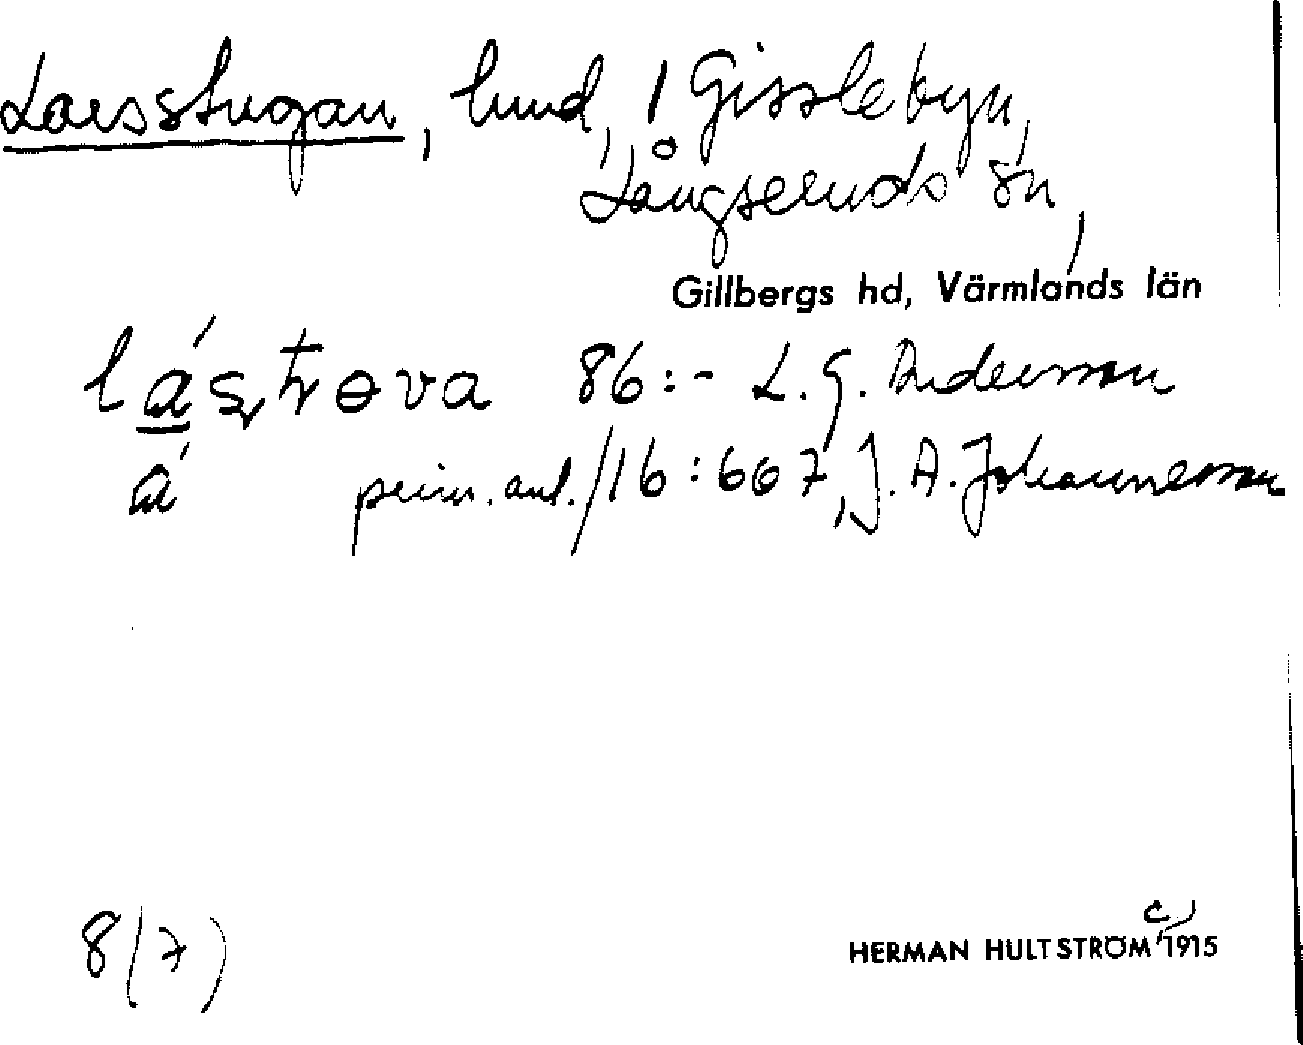 Larsstugan, lund, 1 Gisslebyn,
Långseruds sn,
Gillbergs hd, Värmlands län
lástrɵva 86:- L. G. Andersson
á prim. ant./16:667, J. A. Johannesson
8(7)
c)
HERMAN HULTSTRÖM 1915